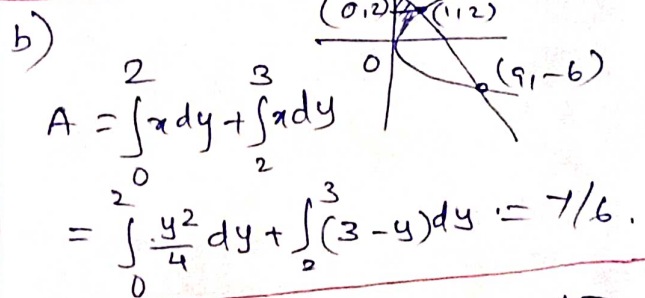 b)
(0,2) (1,2)
0
(9,-6)
A = ∫₀² x dy + ∫₂³ x dy
= ∫₀² y²/4 dy + ∫₂³ (3-y) dy = 7/6.